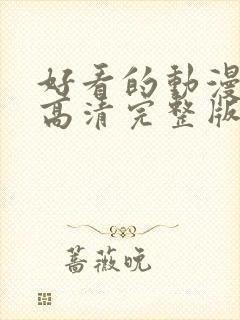 好看的動漫
高清完整版
蔷薇晚